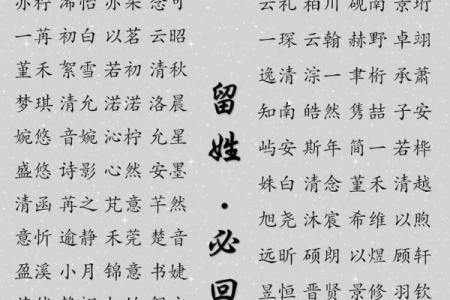 亦柠 浠怡 亦柒 忽可
一苒 初白 以茗 云昭
董禾 絮雪 若初 清秋
梦琪 清允 渃渃 洛晨
婉悠 音婉 沁柠 允星
盛悠 诗影 心然 安墨
清函 苒之 芃意 芊然
意忻 逾静 禾莞 楚音
盈溪 小月 锦意 书婕
留姓·必回
云礼 柏川 砚南 景珩
一琛 云翰 赫野 卓翊
逸清 淙一 聿桁 承萧
知南 皓然 隽喆 子安
屿安 斯年 简一 若桦
姝白 清念 董禾 清越
旭尧 沐宸 希维 以煦
远昕 硕朗 以煜 顾轩
昱恒 晋贤 景修 羽钦